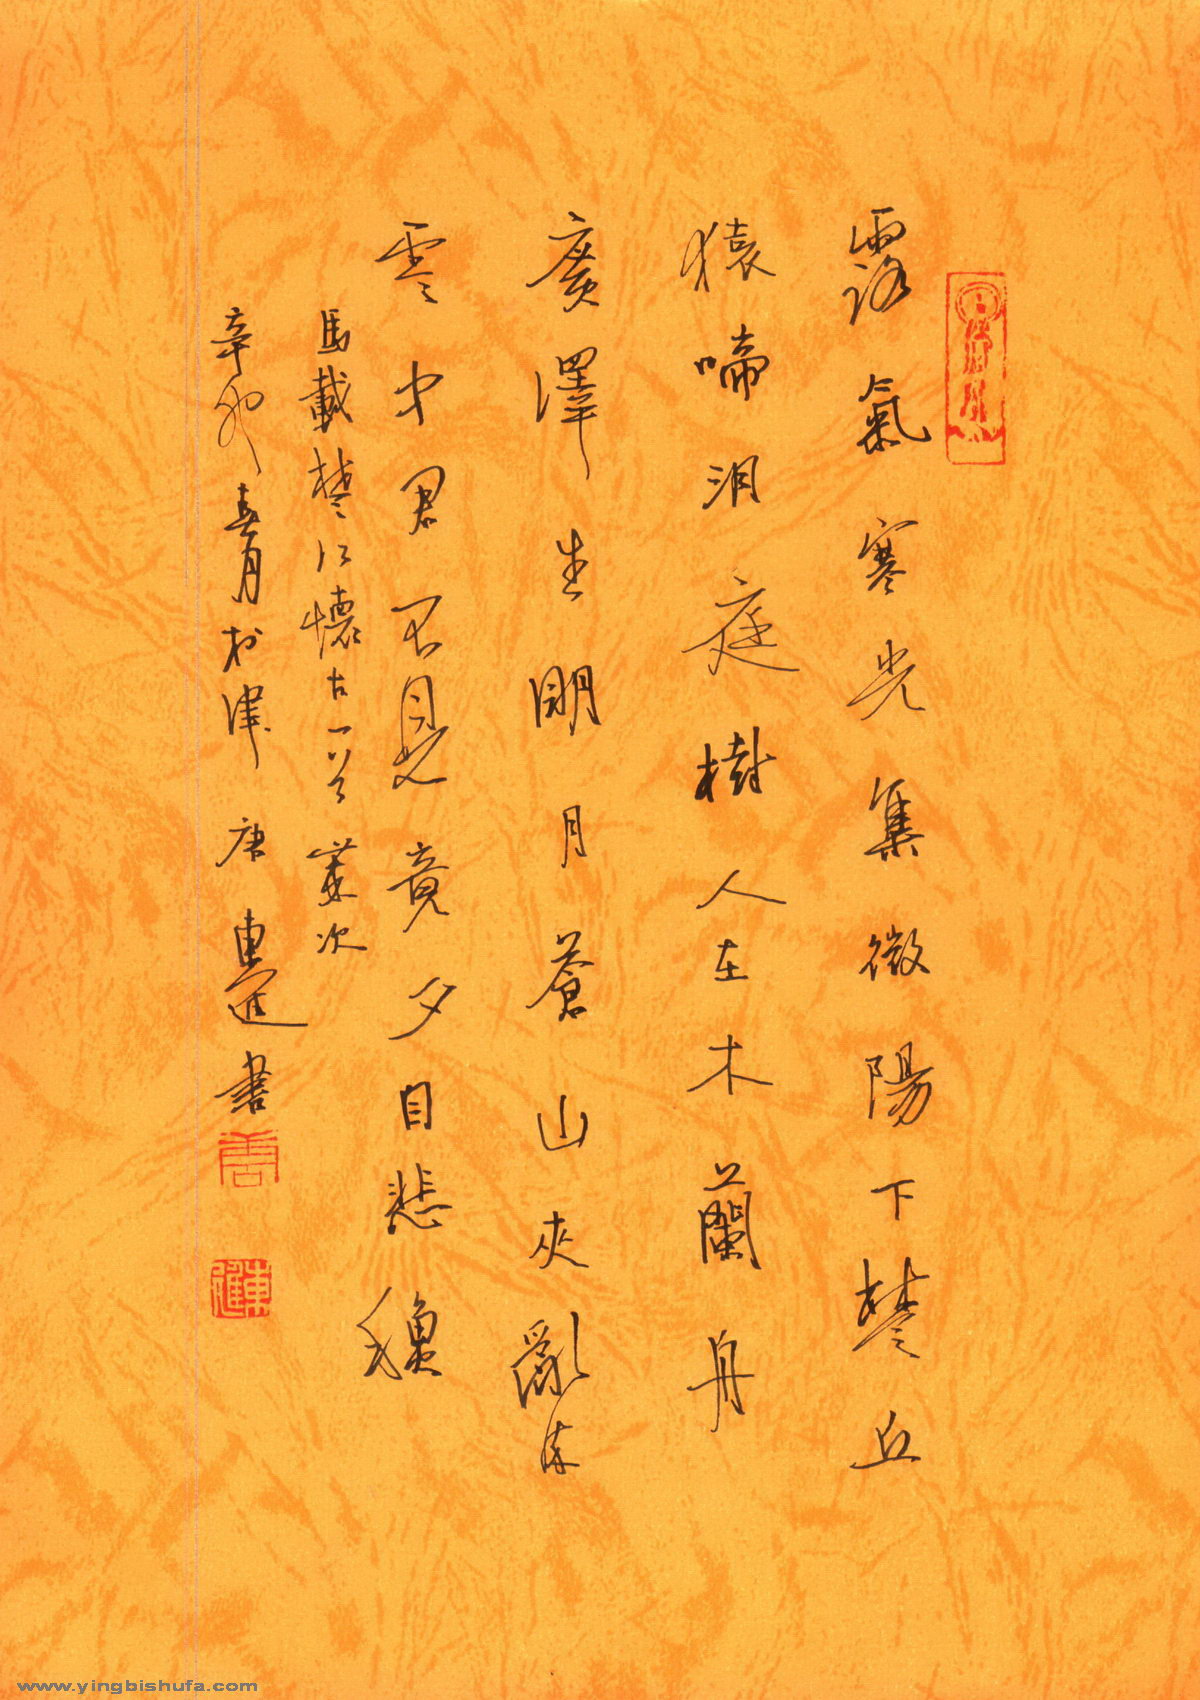 露氣寒光集微陽下楚丘
猿啼泪庭樹人在木蘭舟
廣澤生明月蒼山夾亂流
雲中君不見竟夕自悲穐
馬戴楚江懷古一首葉次
辛卯春月於津唐東進書
www.yingbishufa.com